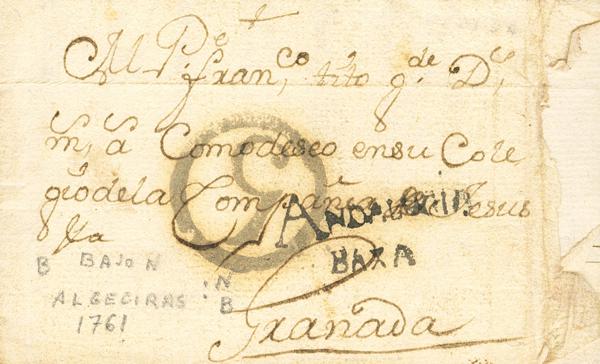 Al P.e
fran.co tito g.de D.s
m.s a.s Como deseo en su Cole
gio de la Compañia de Jesus
5
ANDALUCIA
BAXA
Granada
B BAJO N
ALGECIRAS : N
B
1761